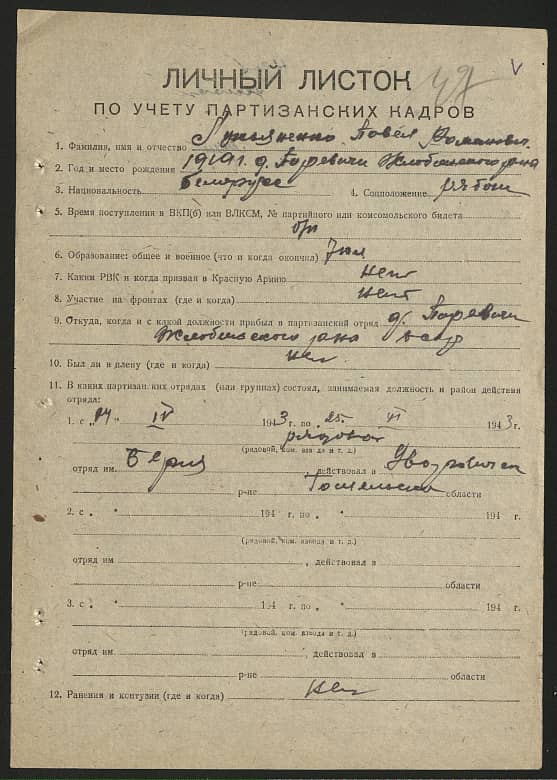 ЛИЧНЫЙ ЛИСТОК
ПО УЧЕТУ ПАРТИЗАНСКИХ КАДРОВ
1. Фамилия, имя и отчество Лукьяненко Павел Романов.
2. Год и место рождения 1919 г. д. Паревичи Жлобинского р-на
3. Национальность Белорус 4. Соцположение
5. Время поступления в ВКП(б) или ВЛКСМ, № партийного или комсомольского билета
б/п
6. Образование: общее и военное (что и когда окончил) 7 кл
7. Каким РВК и когда призван в Красную Армию нет
8. Участие на фронтах (где и когда) нет
9. Откуда, когда и с какой должности прибыл в партизанский отряд д. Паревичи
Жлобинского р-на
10. Был ли в плену (где и когда) нет
11. В каких партизанских отрядах (или группах) состоял, занимаемая должность и район действия
отряда:
1. с „14" IV 1943 г. по „25" VI 1943 г.
рядовой
(рядовой, ком. взвода и т. д.)
отряд им. Берия, действовал в
р-не Гомельской области
2. с „ " 194 г. по „ " 194 г.
(рядовой, ком. взвода и т. д.)
отряд им , действовал в
р-не области
3. с „ " 194 г. по „ " 194 г.
(рядовой, ком. взвода и т. д.)
отряд им. , действовал в
р-не области
12. Ранения и контузии (где и когда) нет